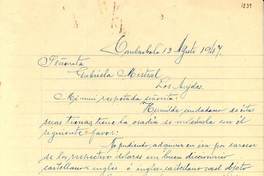 1839
Combarbalá 13 Agosto 1947.
Señorita
Gabriela Mistral
Los Angeles
Mi muy respetada señorita:
Humilde ciudadano se
suas tienas tiene la osadía se molestarla en el
siguiente favor:
No pudiendo adquirir en ésa por carecer
de los respectivos dólares un buen diccionario
castellano inglés o inglés-castellano cuyo objeto